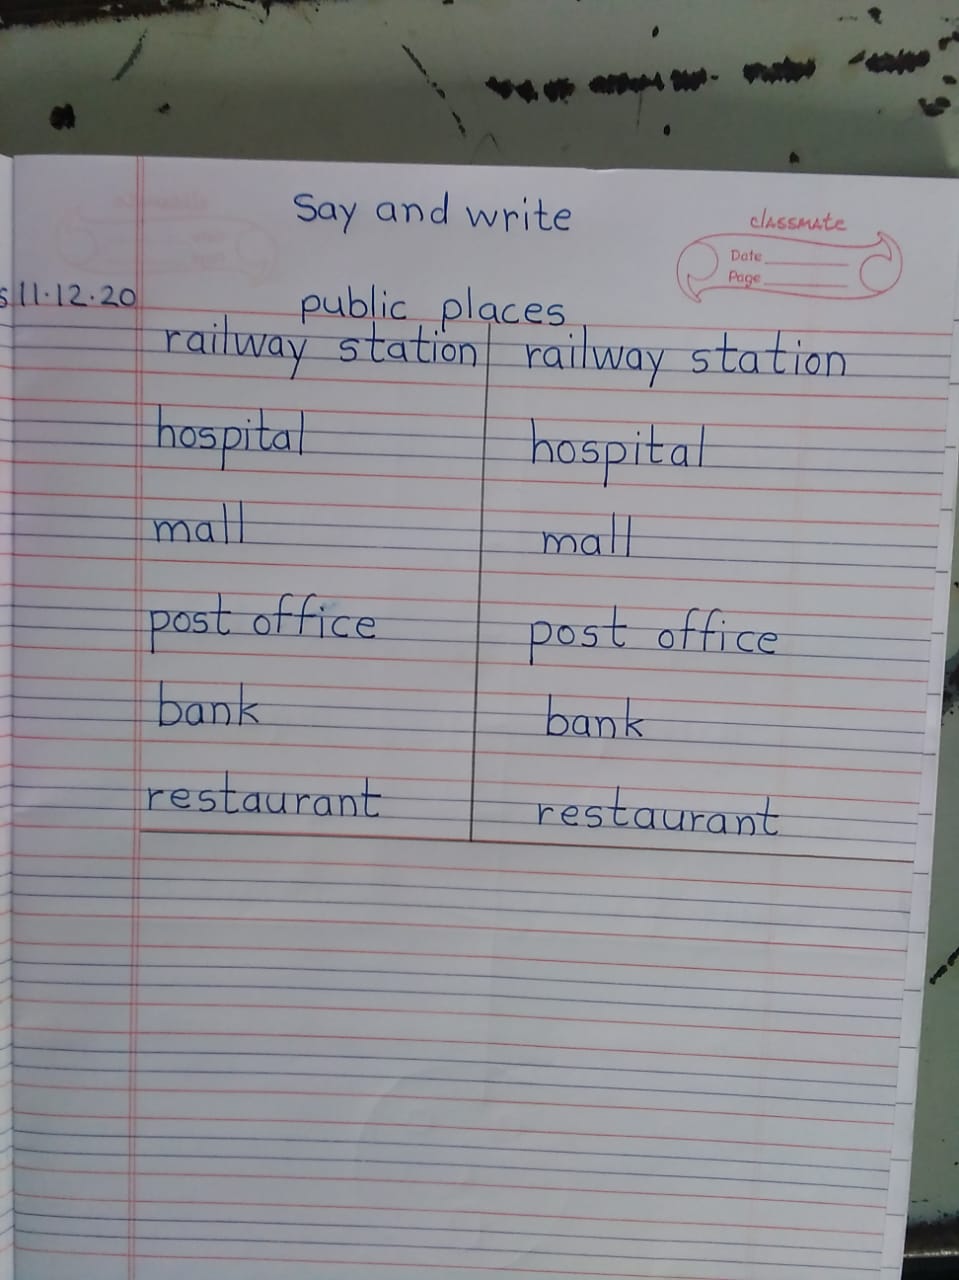 Say and write
classmate
Date
Page
s 11.12.20
public places
railway station railway station
hospital hospital
mall mall
post office post office
bank bank
restaurant restaurant